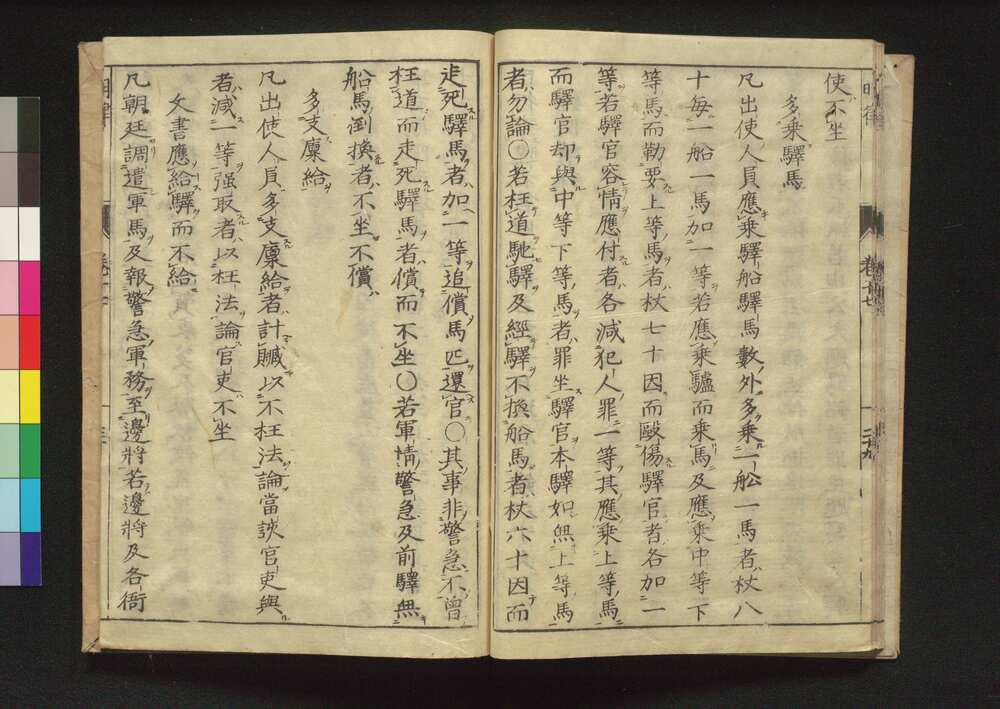 使不坐
多乗驛馬
凡出使人員應乗驛船驛馬數外多乗一舩一馬者杖八
十毎一船一馬加一等若應乗驢而乗馬及應乗中等下
等馬而勒要上等馬者杖七十因而毆傷驛官者各加一
等若驛官容情應付者各减犯人罪一等其應乗上等馬
而驛官却與中等下等馬者罪坐驛官本驛如無上等馬
者勿論〇若枉道馳驛及經驛不換船馬者杖六十因而
走死驛馬者加一等追償馬匹還官〇其事非警急不曾
枉道而走死驛馬者償而不坐〇若軍情警急及前驛無
船馬倒換者不坐不償
多支廩給
凡出使人員多支廩給者計贓以不枉法論當該官吏與
者减一等强取者以枉法論官吏不坐
文書應給驛而不給
凡朝廷調遣軍馬及報警急軍務至邊將若邊將及各衙